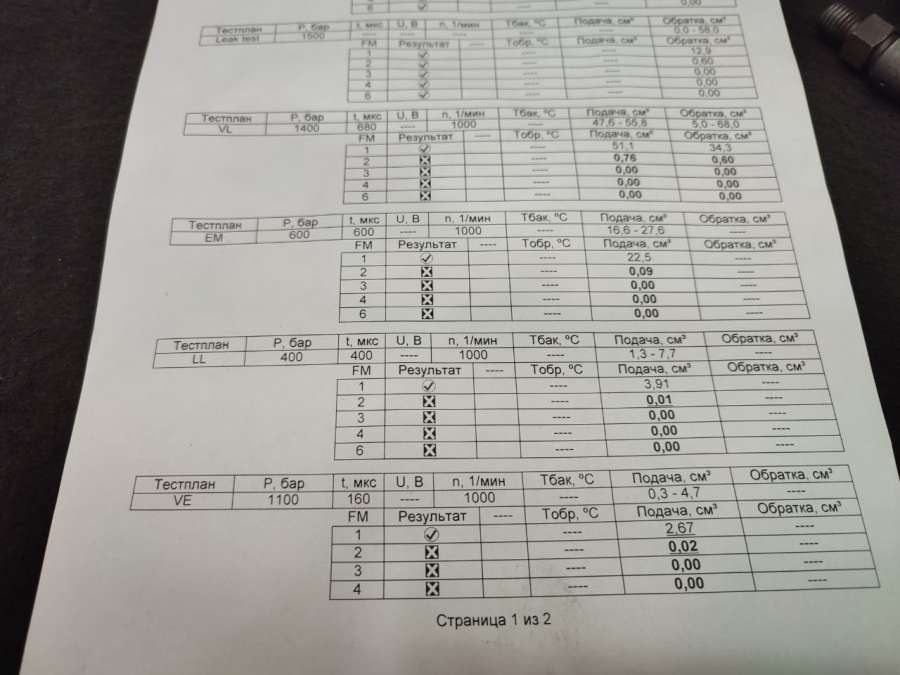 6 ---- ---- 0,00
Тестплан P, бар t, мкс U, В n, 1/мин Тбак, ºC Подача, см³ Обратка, см³
Leak test 1500 ---- ---- ---- ---- ---- 0,0 - 58,0
FM Результат ---- Тобр, ºC Подача, см³ Обратка, см³
1 ---- ---- 12,9
2 ---- ---- 0,60
3 ---- ---- 0,00
4 ---- ---- 0,00
6 ---- ---- 0,00
Тестплан P, бар t, мкс U, В n, 1/мин Тбак, ºC Подача, см³ Обратка, см³
VL 1400 680 ---- 1000 ---- 47,6 - 55,8 5,0 - 68,0
FM Результат ---- Тобр, ºC Подача, см³ Обратка, см³
1 ---- 51,1 34,3
2 ---- 0,76 0,60
3 ---- 0,00 0,00
4 ---- 0,00 0,00
6 ---- 0,00 0,00
Тестплан P, бар t, мкс U, В n, 1/мин Тбак, ºC Подача, см³ Обратка, см³
EM 600 600 ---- 1000 ---- 16,6 - 27,6 ----
FM Результат ---- Тобр, ºC Подача, см³ Обратка, см³
1 ---- 22,5 ----
2 ---- 0,09 ----
3 ---- 0,00 ----
4 ---- 0,00 ----
6 ---- 0,00 ----
Тестплан P, бар t, мкс U, В n, 1/мин Тбак, ºC Подача, см³ Обратка, см³
LL 400 400 ---- 1000 ---- 1,3 - 7,7 ----
FM Результат ---- Тобр, ºC Подача, см³ Обратка, см³
1 ---- 3,91 ----
2 ---- 0,01 ----
3 ---- 0,00 ----
4 ---- 0,00 ----
6 ---- 0,00 ----
Тестплан P, бар t, мкс U, В n, 1/мин Тбак, ºC Подача, см³ Обратка, см³
VE 1100 160 ---- 1000 ---- 0,3 - 4,7 ----
FM Результат ---- Тобр, ºC Подача, см³ Обратка, см³
1 ---- 2,67 ----
2 ---- 0,02 ----
3 ---- 0,00 ----
4 ---- 0,00 ----
Страница 1 из 2